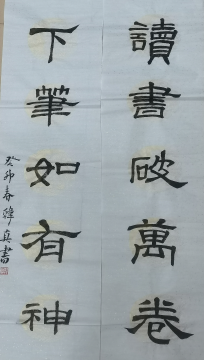 讀書破萬卷
下筆如有神
癸卯春韓真書